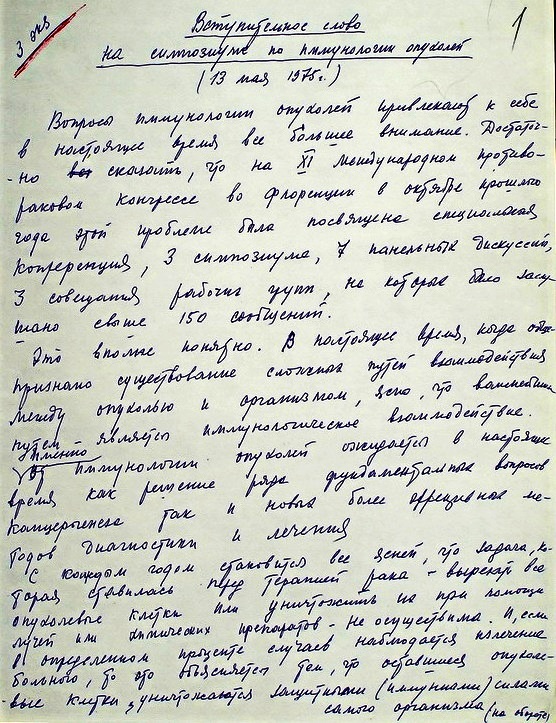 3 экз
1
Вступительное слово
на симпозиуме по иммунологии опухолей
(13 мая 1975г.)
Вопросы иммунологии опухолей привлекают к себе
в настоящее время все большее внимание. Достаточ-
-но сказать, что на XI международном противо-
раковом конгрессе во Флоренции в октябре прошлого
года этой проблеме была посвящена специальная
конференция, 3 симпозиума, 7 панельных дискуссий,
3 совещания рабочих групп, на которых было заслу-
шано свыше 150 сообщений.
Это вполне понятно. В настоящее время, когда обще-
признано существование сложных путей взаимодействия
между опухолью и организмом, ясно, что важнейшим
путем является иммунологическое взаимодействие.
Именно
От иммунологии опухолей ожидается в настоящее
время как решение ряда фундаментальных вопросов
канцерогенеза так и новых более эффективных ме-
тодов диагностики и лечения
С каждым годом становится все ясней, что задача, ко-
торая ставилась перед терапией рака - вырезать все
опухолевые клетки или уничтожить их при помощи
лучей или химических препаратов - не осуществима. И, если
в определенном проценте случаев наблюдается излечение
больного, то это объясняется тем, что оставшиеся опухоле-
-вые клетки уничтожаются защитными (иммунными) силами
самого организма (на обороте)